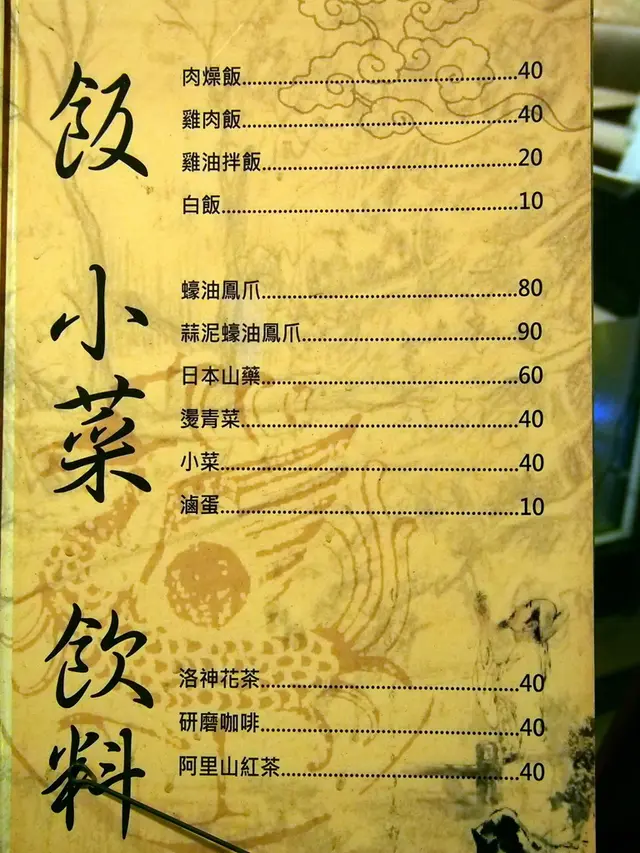 飯
肉燥飯 40
雞肉飯 40
雞油拌飯 20
白飯 10
小菜
蠔油鳳爪 80
蒜泥蠔油鳳爪 90
日本山藥 60
燙青菜 40
小菜 40
滷蛋 10
飲料
洛神花茶 40
研磨咖啡 40
阿里山紅茶 40